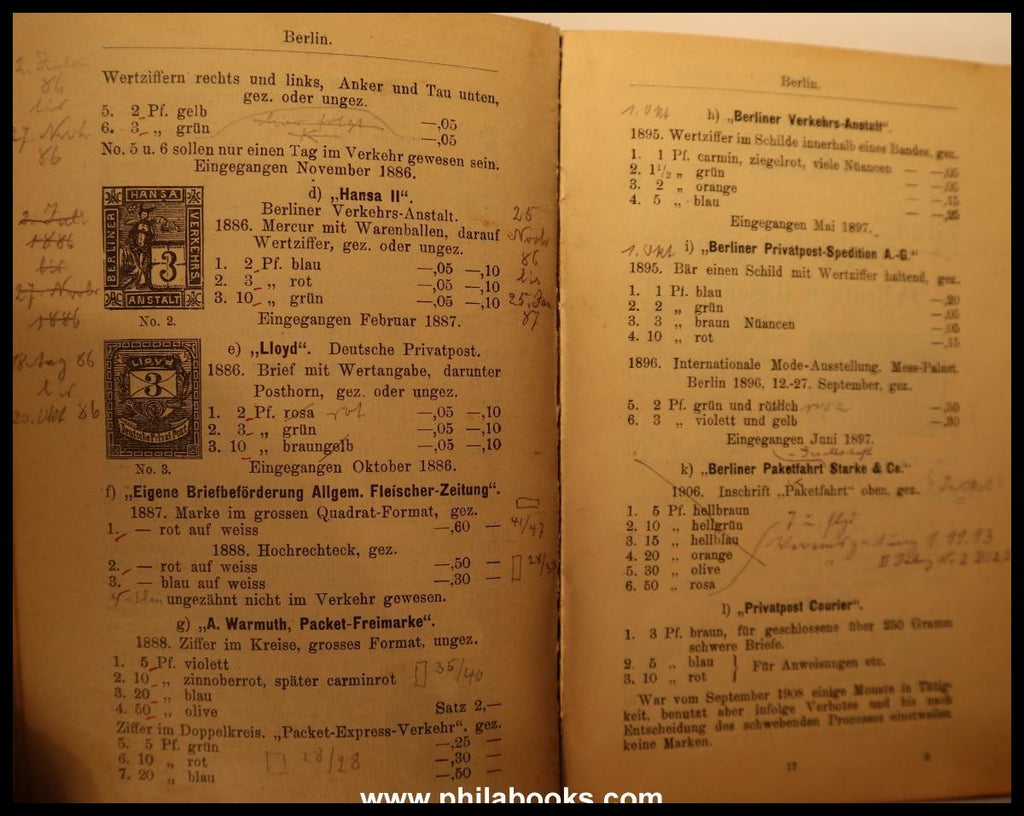 Berlin.
Wertziffern rechts und links, Anker und Tau unten,
gez. oder ungez.
5. 2 Pf. gelb —,05
6. 3 „ grün —,05
No. 5 u. 6 sollen nur einen Tag im Verkehr gewesen sein.
Eingegangen November 1886.
d) „Hansa II“.
Berliner Verkehrs-Anstalt.
1886. Mercur mit Warenballen, darauf
Wertziffer, gez. oder ungez.
1. 2 Pf. blau —,05 —,10
2. 3 „ rot —,05 —,10
3. 10 „ grün —,05 —,10
Eingegangen Februar 1887.
HANSA
BERLINER
VERKEHRS-
3
ANSTALT
No. 2.
e) „Lloyd“. Deutsche Privatpost.
1886. Brief mit Wertangabe, darunter
Posthorn, gez. oder ungez.
1. 2 Pf. rosa rot —,05 —,10
2. 3 „ grün —,05 —,10
3. 10 „ braungelb —,05 —,10
Eingegangen Oktober 1886.
LLOYD
3
Deutsche Privat Post
No. 3.
f) „Eigene Briefbeförderung Allgem. Fleischer-Zeitung“.
1887. Marke im grossen Quadrat-Format, gez.
1. — rot auf weiss —,60 — 41/47
1888. Hochrechteck, gez.
2. — rot auf weiss —,50 —
3. — blau auf weiss —,30 —
4 — blau ungezähnt nicht im Verkehr gewesen.
g) „A. Warmuth, Packet-Freimarke“.
1888. Ziffer im Kreise, grosses Format, ungez.
1. 5 Pf. violett
2. 10 „ zinnoberrot, später carminrot 35/40
3. 20 „ blau
4. 50 „ olive Satz 2,—
Ziffer im Doppelkreis. „Packet-Express-Verkehr“. gez.
5. 5 Pf. grün —,25 —
6. 10 „ rot —,30 —
7. 20 „ blau —,50 —
23/28
2.
86
bis
27. Novbr
86
1886
bis
27. Novbr
1886
18. Aug 86
bis
86
25
Novbr
86
bis
25. Jan
87
Berlin.
1. Okt h) „Berliner Verkehrs-Anstalt“.
1895. Wertziffer im Schilde innerhalb eines Bandes, gez.
1. 1 Pf. carmin, ziegelrot, viele Nüancen — —,05
2. 1½ „ grün — —,05
3. 2 „ orange — —,15
4. 5 „ blau — —,25
Eingegangen Mai 1897.
1. Okt i) „Berliner Privatpost-Spedition A.-G.“
1895. Bär einen Schild mit Wertziffer haltend, gez.
1. 1 Pf. blau —,20
2. 2 „ grün —,05
3. 3 „ braun Nüancen —,05
4. 10 „ rot —,15
1896. Internationale Mode-Ausstellung. Mess-Palast.
Berlin 1896. 12.-27. September, gez.
5. 2 Pf. grün und rötlich rosa —,50
6. 3 „ violett und gelb —,30
Eingegangen Juni 1897.
k) „Berliner Paketfahrt Starke & Co.“
1906. Inschrift „Paketfahrt“ oben, gez.
1. 5 Pf. hellbraun
2. 10 „ hellgrün
3. 15 „ hellblau
4. 20 „ orange
5. 30 „ olive
6. 50 „ rosa
l) „Privatpost Courier“.
1. 3 Pf. braun, für geschlossene über 250 Gramm
schwere Briefe.
2. 5 „ blau
3. 10 „ rot
Für Anweisungen etc.
War vom September 1908 einige Monate in Tätig-
keit, benutzt aber infolge Verbotes und bis nach
Entscheidung des schwebenden Prozesses einstweilen
keine Marken.
17
www.philabooks.com